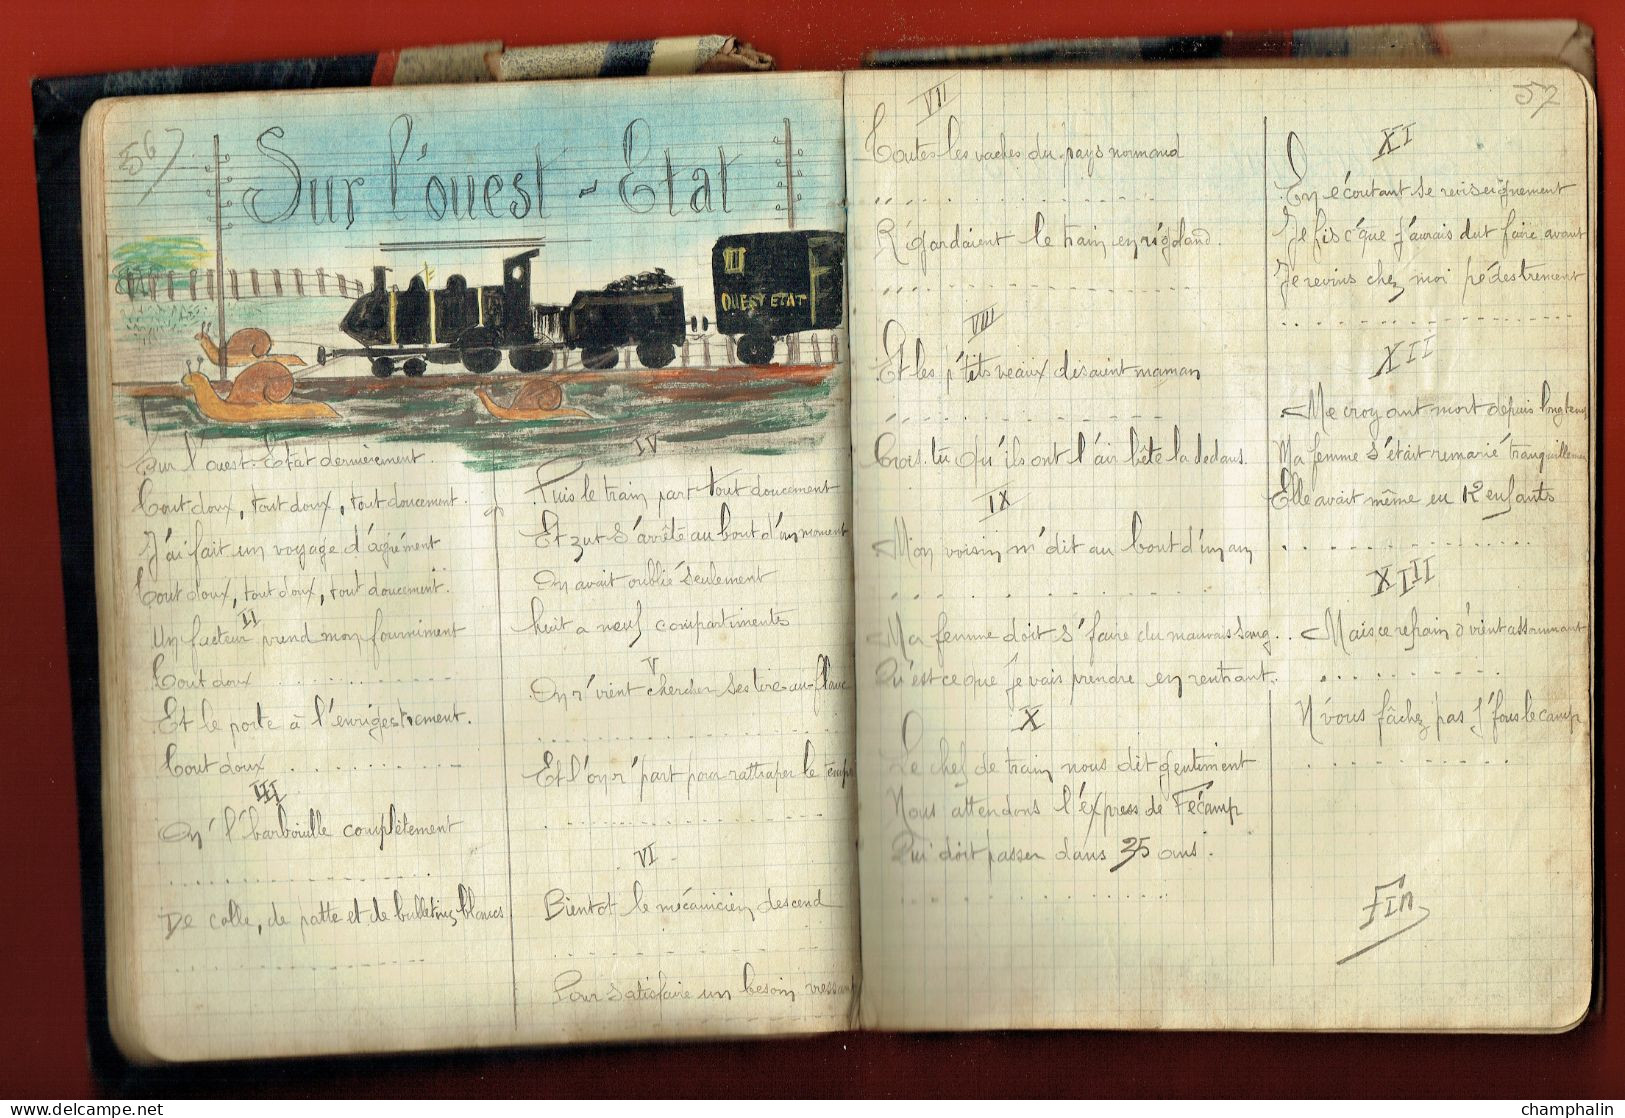 56)
Sur l'ouest-Etat
III
OUEST ETAT
Sur l'ouest-Etat dernièrement.
Tout doux, tout doux, tout doucement.
J'ai fait un voyage d'agrément
Tout doux, tout doux, tout doucement.
II
Un facteur prend mon fourniment
Tout doux . . . . . . . . . . . .
Et le porte à l'enrigestrement.
Tout doux . . . . . . . . . . . .
III
On l'barbouille complètement
. . . . . . . . . . . . . . . . .
De colle, de patte et de bulletins blancs
. . . . . . . . . . . . . . . . .
IV
Puis le train part tout doucement
Et zut s'arrête au bout d'un moment
On avait oublié seulement
huit a neuf compartiments
V
On r'vient chercher ses tire-au-flanc
. . . . . . . . . . . . . . . . .
Et l'on r'part pour rattraper le temps
. . . . . . . . . . . . . . . . .
VI
Bientot le mécanicien descend
. . . . . . . . . . . . . . . . .
Pour satisfaire un besoin pressant
. . . . . . . . . . . . . . . . .
57
VII
Toutes les vaches du pays normand
. . . . . . . . . . . . . . . . .
R'gardaient le train en rigoland.
. . . . . . . . . . . . . . . . .
VIII
Et les p'tits veaux disaient maman
. . . . . . . . . . . . . . . . .
Crois-tu qu'ils ont l'air bête la dedans.
IX
Mon voisin m'dit au bout d'un an
. . . . . . . . . . . . . . . . .
Ma femme doit s'faire du mauvais sang. .
Qu'est ce que j'vais prendre en rentrant.
X
Le chef de train nous dit gentiment
Nous attendons l'éxpress de Fécamp
Qui doit passer dans 35 ans.
. . . . . . . . . . . . . . . . .
XI
En écoutant se renseignement
Je fis c'que j'aurais dut faire avant
Je revins chez moi pédestrement
. . . . . . . . . . . . . . . . .
XII
Me croyant mort depuis longtemps
Ma femme s'était remarié tranquillement
Elle avait même eu 12 enfants
. . . . . . . . . . . . . . . . .
XIII
Mais ce refrain d'vient assommant
. . . . . . . . . . . .
N'vous fâchez pas j'fous le camp
. . . . . . . . . . . .
Fin
champhalin